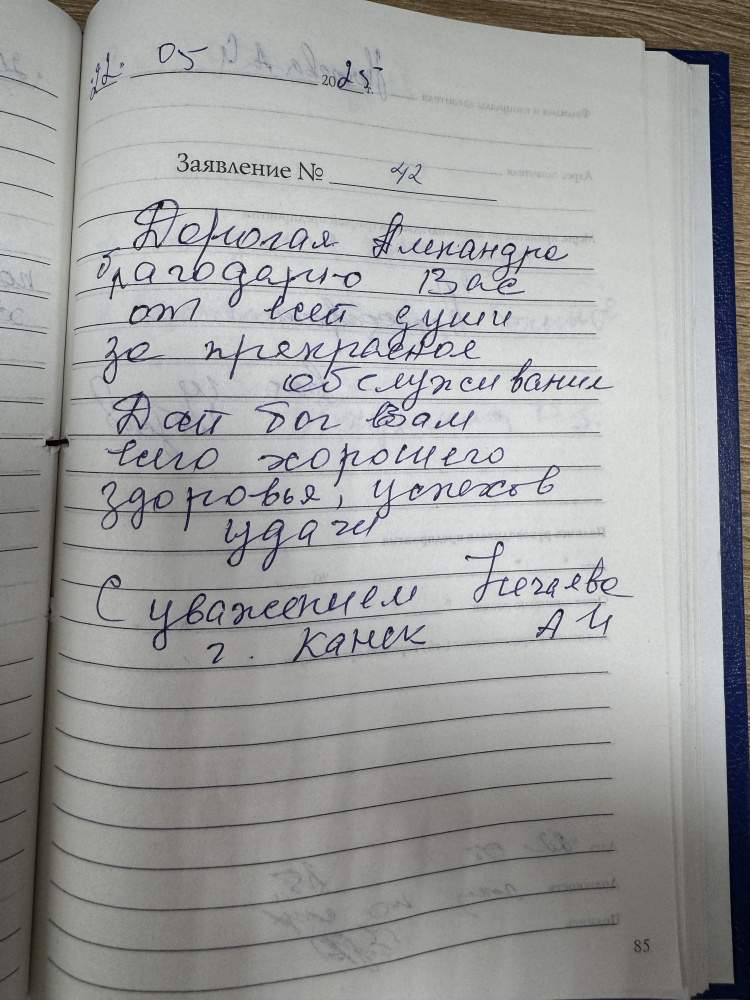 "22" 05 2025 г.
Заявление № 42
Дорогая Александра
благодарю Вас
от всей души
за прекрасное
обслуживание
Дай бог Вам
всего хорошего
здоровья, успехов
удачи
С уважением Нечаева
г. Канск А И
85